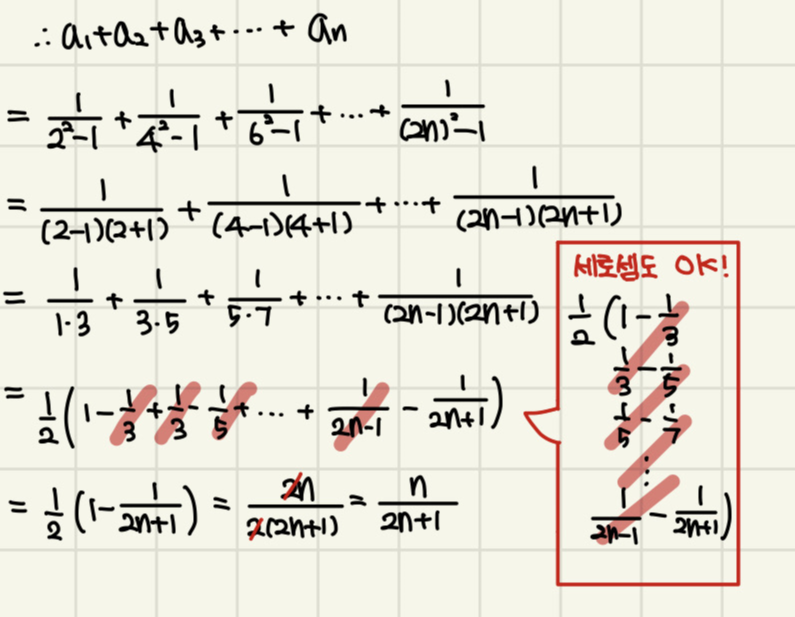 ∴ a₁+a₂+a₃+⋯+ aₙ
= 1/(2²-1) + 1/(4²-1) + 1/(6²-1) + ⋯ + 1/((2n)²-1)
= 1/((2-1)(2+1)) + 1/((4-1)(4+1)) + ⋯ + 1/((2n-1)(2n+1))
= 1/(1·3) + 1/(3·5) + 1/(5·7) + ⋯ + 1/((2n-1)(2n+1))
= 1/2 (1 - 1/3 + 1/3 - 1/5 + ⋯ + 1/(2n-1) - 1/(2n+1))
= 1/2 (1 - 1/(2n+1)) = 2n/(2(2n+1)) = n/(2n+1)
세로셈도 OK!
1/2 (1 - 1/3
1/3 - 1/5
1/5 - 1/7
⋮
1/(2n-1) - 1/(2n+1))